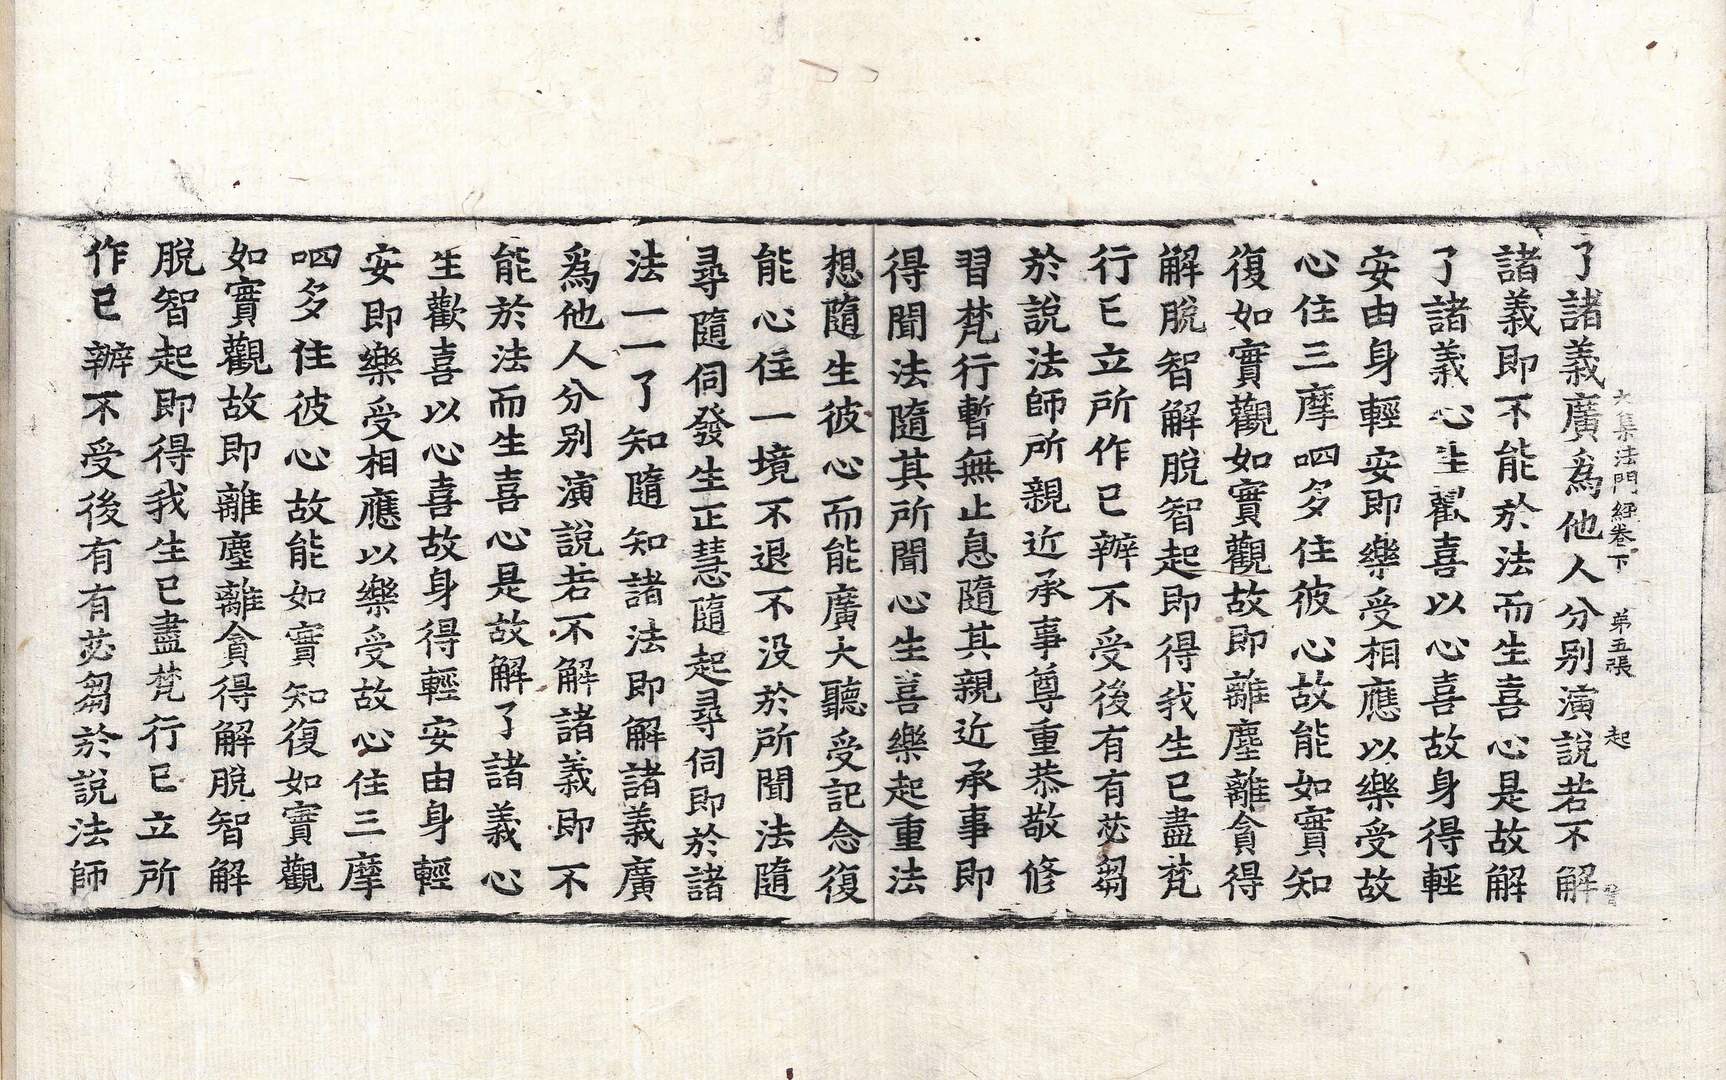 大集法門經卷下 第五張 起
了諸義廣爲他人分别演說若不解
諸義即不能於法而生喜心是故解
了諸義心生歡喜以心喜故身得輕
安由身輕安即樂受相應以樂受故
心住三摩呬多住彼心故能如實知
復如實觀如實觀故即離塵離貪得
解脫智解脫智起即得我生已盡梵
行已立所作已辦不受後有有苾芻
於說法師所親近承事尊重恭敬修
習梵行暫無止息隨其親近承事即
得聞法隨其所聞心生喜樂起重法
想隨生彼心而能廣大聽受記念復
能心住一境不退不没於所聞法隨
尋隨伺發生正慧隨起尋伺即於諸
法一一了知隨知諸法即解諸義廣
爲他人分别演說若不解諸義即不
能於法而生喜心是故解了諸義心
生歡喜以心喜故身得輕安由身輕
安即樂受相應以樂受故心住三摩
呬多住彼心故能如實知復如實觀
如實觀故即離塵離貪得解脫智解
脫智起即得我生已盡梵行已立所
作已辦不受後有有苾芻於說法師